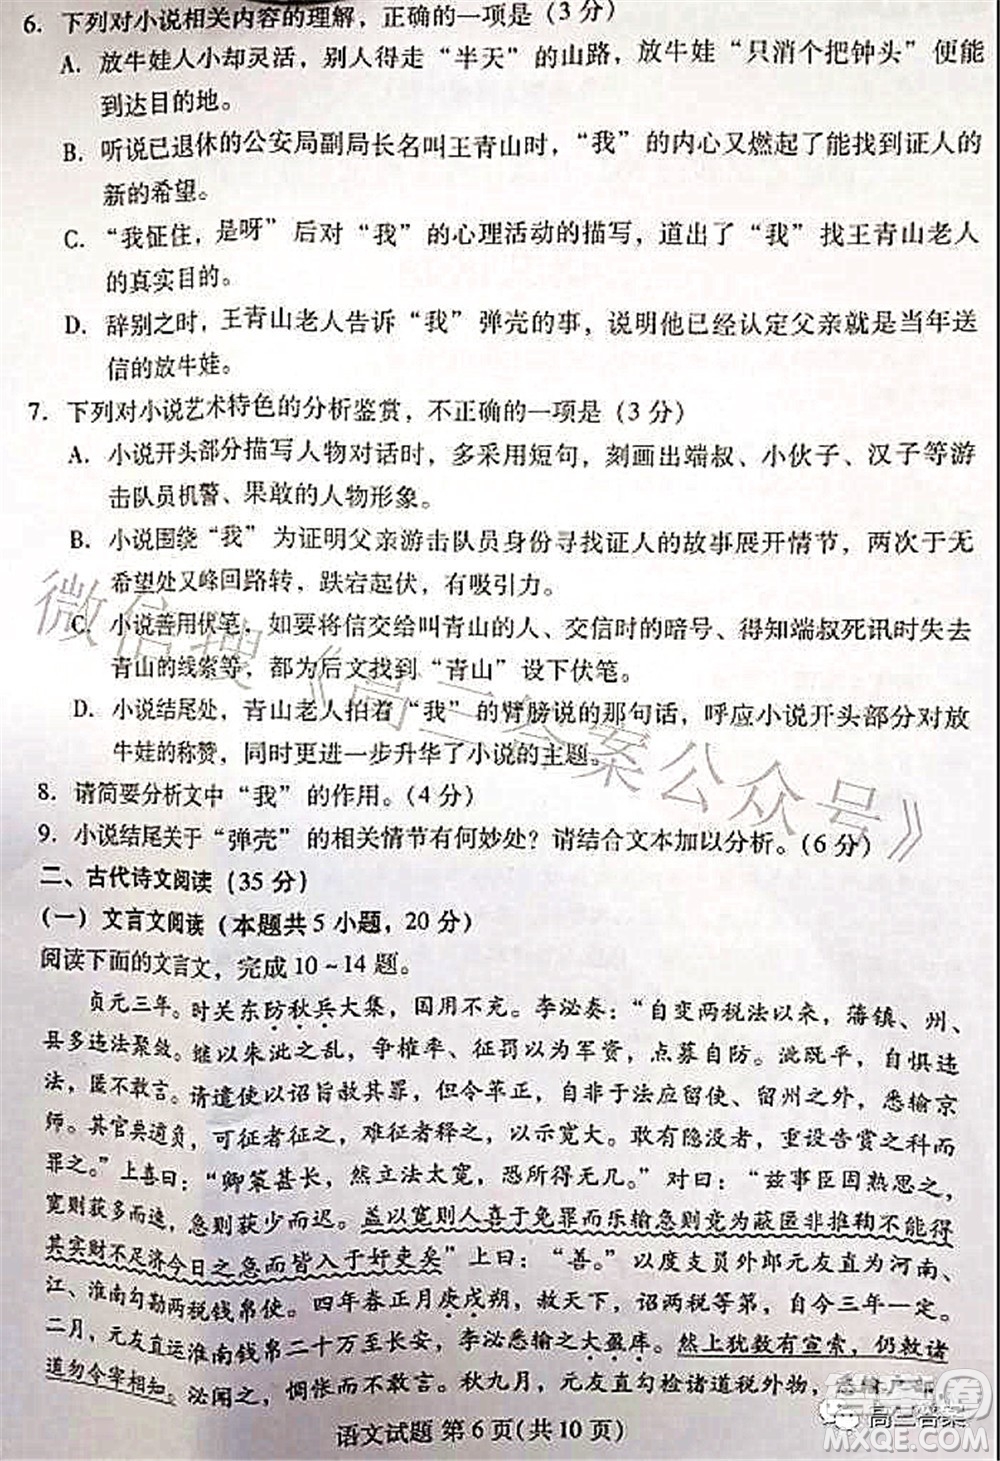 6. 下列对小说相关内容的理解，正确的一项是（3 分）
A. 放牛娃人小却灵活，别人得走“半天”的山路，放牛娃“只消个把钟头”便能
到达目的地。
B. 听说已退休的公安局副局长名叫王青山时，“我”的内心又燃起了能找到证人的
新的希望。
C. “我怔住，是呀”后对“我”的心理活动的描写，道出了“我”找王青山老人
的真实目的。
D. 辞别之时，王青山老人告诉“我”弹壳的事，说明他已经认定父亲就是当年送
信的放牛娃。
7. 下列对小说艺术特色的分析鉴赏，不正确的一项是（3 分）
A. 小说开头部分描写人物对话时，多采用短句，刻画出端叔、小伙子、汉子等游
击队员机警、果敢的人物形象。
B. 小说围绕“我”为证明父亲游击队员身份寻找证人的故事展开情节，两次于无
希望处又峰回路转，跌宕起伏，有吸引力。
C. 小说善用伏笔，如要将信交给叫青山的人、交信时的暗号、得知端叔死讯时失去
青山的线索等，都为后文找到“青山”设下伏笔。
D. 小说结尾处，青山老人拍着“我”的臂膀说的那句话，呼应小说开头部分对放
牛娃的称赞，同时更进一步升华了小说的主题。
8. 请简要分析文中“我”的作用。（4 分）
9. 小说结尾关于“弹壳”的相关情节有何妙处？请结合文本加以分析。（6 分）
二、古代诗文阅读（35 分）
（一）文言文阅读（本题共 5 小题，20 分）
阅读下面的文言文，完成 10～14 题。
贞元三年。时关东防秋兵大集，国用不充。李泌奏：“自变两税法以来，藩镇、州、
县多违法聚敛。继以朱泚之乱，争榷率、征罚以为军资，点募自防。泚既平，自惧违
法，匿不敢言。请遣使以诏旨赦其罪，但令革正，自非于法应留使、留州之外，悉输京
师。其官典逋负，可征者征之，难征者释之，以示宽大。敢有隐没者，重设告赏之科而
罪之。”上喜曰：“卿策甚长，然立法太宽，恐所得无几。”对曰：“兹事臣固熟思之，
宽则获多而速，急则获少而迟。盖以宽则人喜于免罪而乐输急则竞为蔽匿非推鞫不能得
其实财不足济今日之急而皆入于奸吏矣”上曰：“善。”以度支员外郎元友直为河南、
江、淮南勾勘两税钱帛使。四年春正月庚戌朔，赦天下，诏两税等第，自今三年一定。
二月，元友直运淮南钱帛二十万至长安，李泌悉输之大盈库。然上犹数有宣索，仍敕诸
道勿令宰相知。泌闻之，惆怅而不敢言。秋九月，元友直勾检诸道税外物，悉输户部，
语文试题 第 6 页（共 10 页）
微信搜《高三答案公众号》
高三答案
答案圈
MXQE.COM